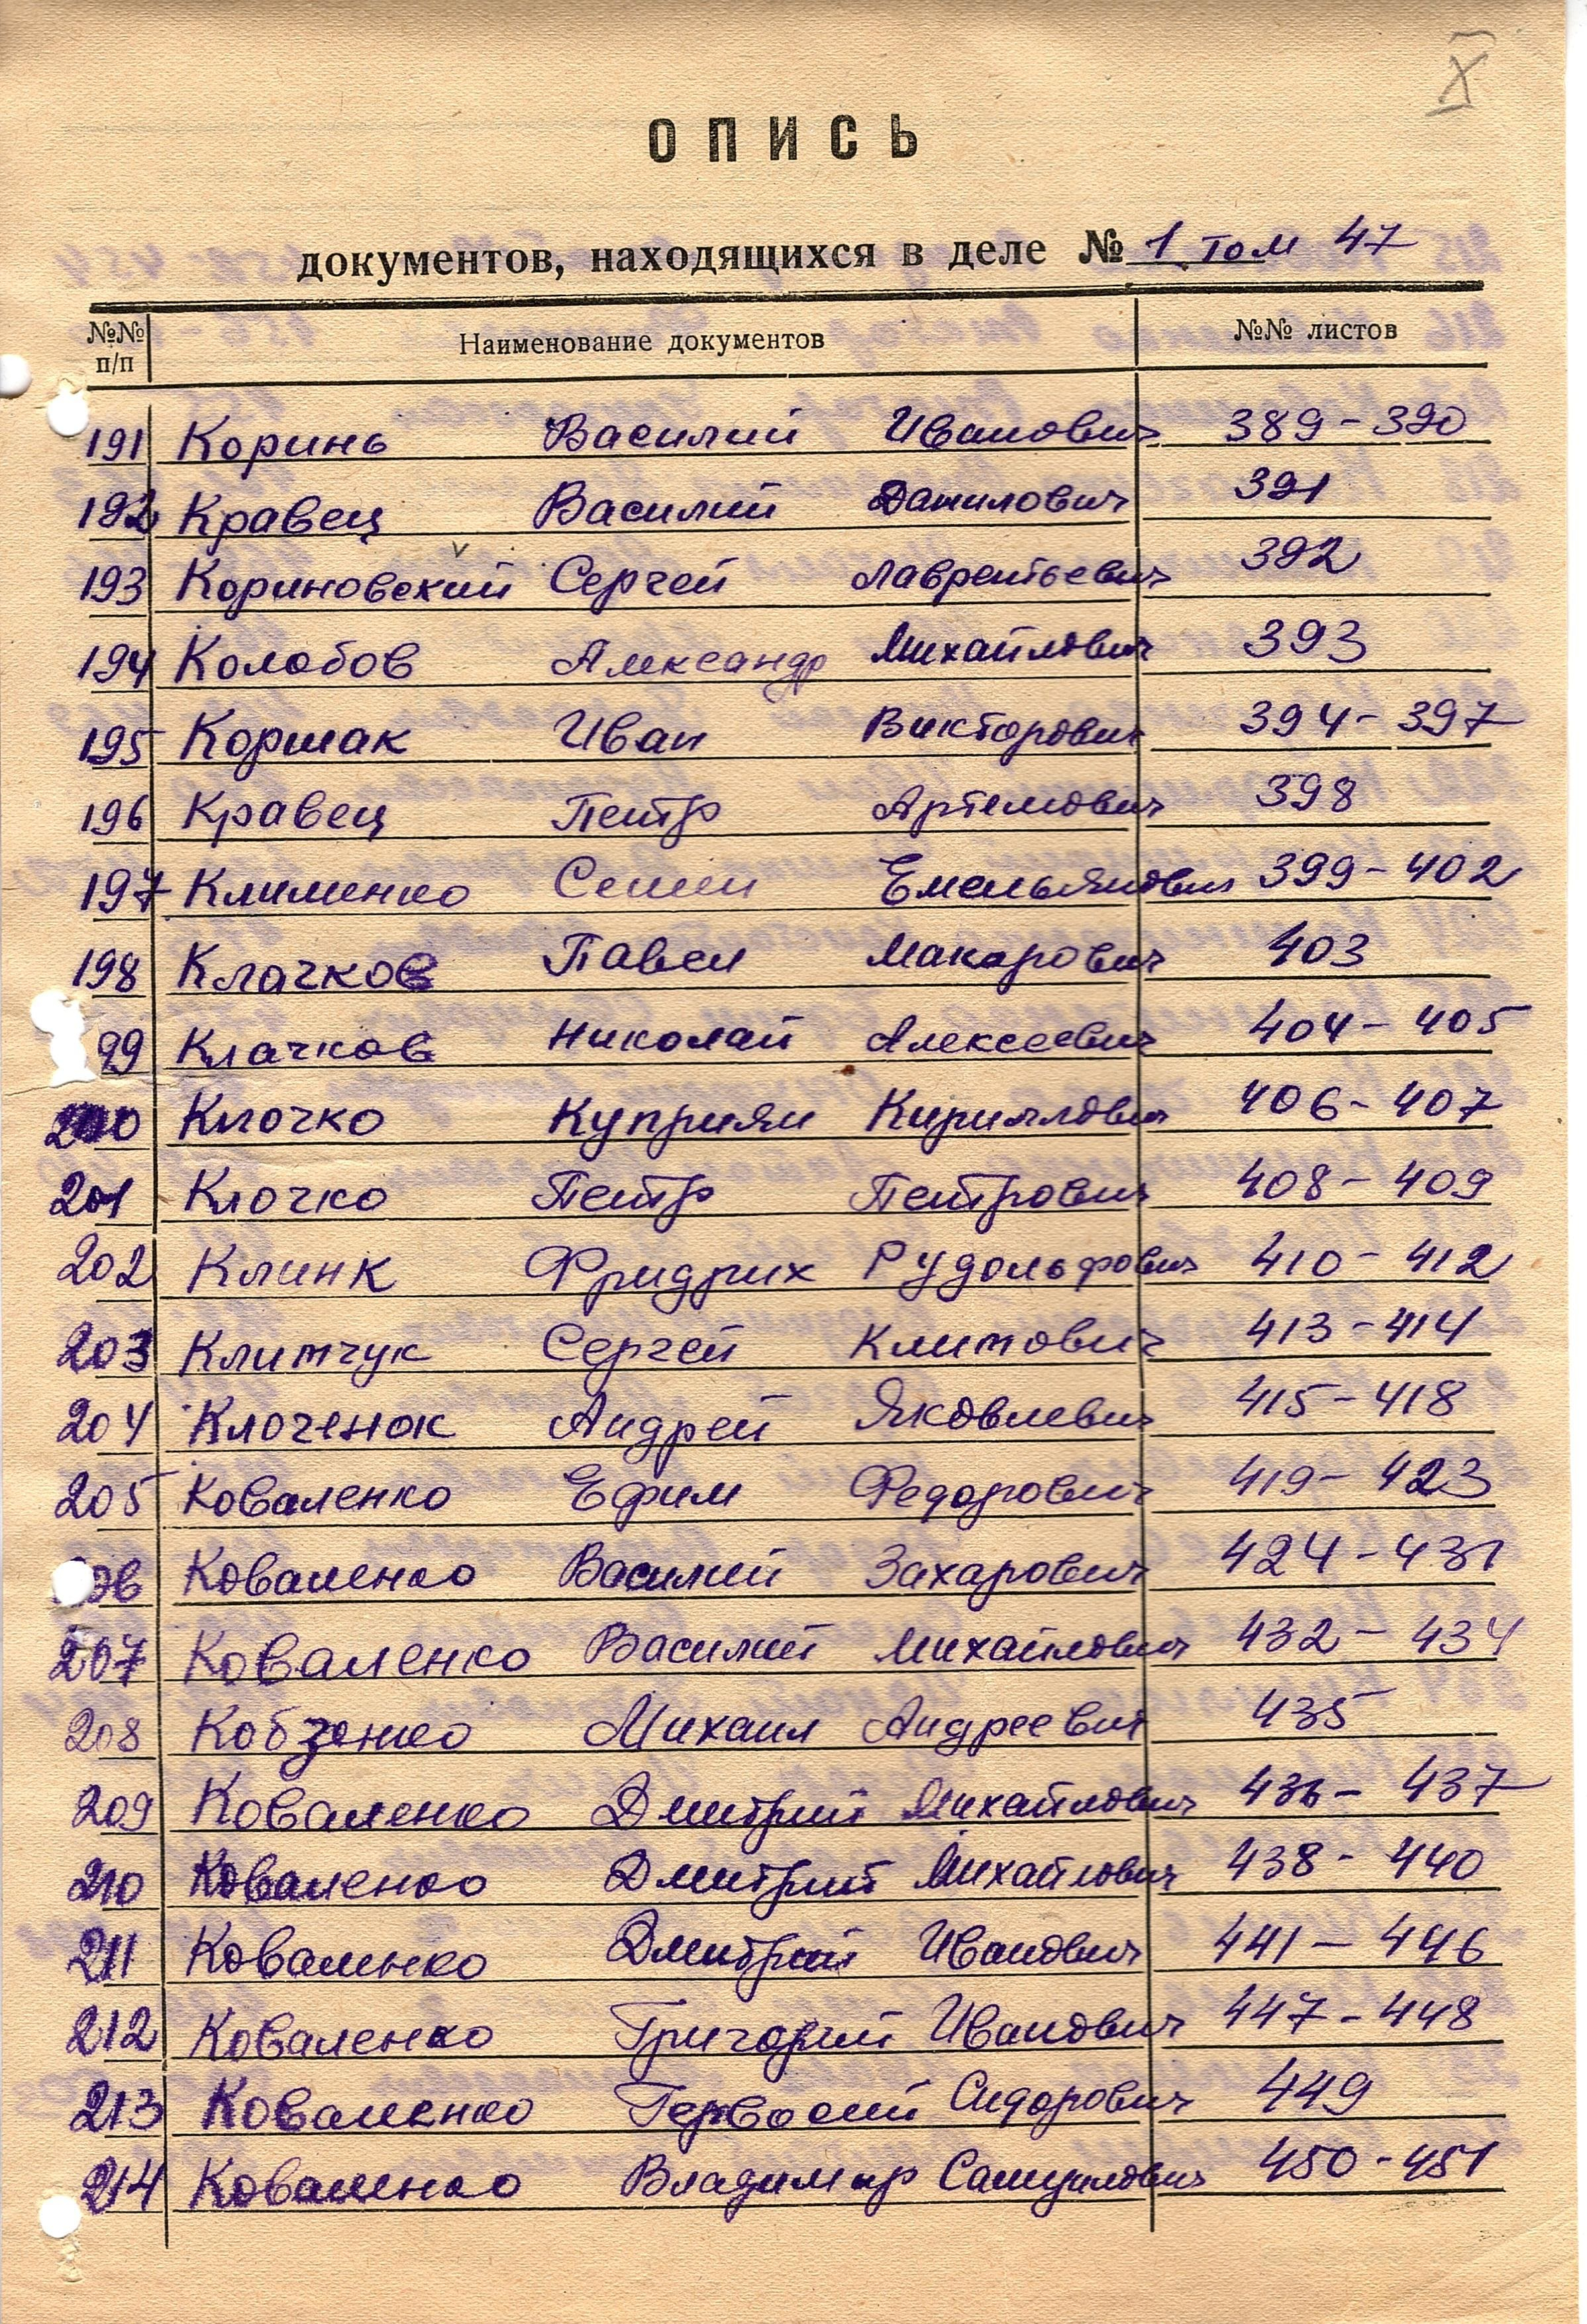 X
ОПИСЬ
документов, находящихся в деле № 1 том 47
№№ п/п Наименование документов №№ листов
191 Коринь Василий Иванович 389-390
192 Кравец Василий Данилович 391
193 Кориновский Сергей Лаврентьевич 392
194 Колобов Александр Михайлович 393
195 Коршак Иван Викторович 394-397
196 Кравец Петр Артемович 398
197 Клименко Семен Емельянович 399-402
198 Клачков Павел Макарович 403
99 Клачков Николай Алексеевич 404-405
200 Клочко Куприян Кириллович 406-407
201 Клочко Петр Петрович 408-409
202 Клинк Фридрих Рудольфович 410-412
203 Климчук Сергей Климович 413-414
204 Клоченок Андрей Яковлевич 415-418
205 Коваленко Ефим Федорович 419-423
06 Коваленко Василий Захарович 424-431
207 Коваленко Василий Михайлович 432-434
208 Кобзенко Михаил Андреевич 435
209 Коваленко Дмитрий Михайлович 436-437
210 Коваленко Дмитрий Михайлович 438-440
211 Коваленко Дмитрий Иванович 441-446
212 Коваленко Григорий Иванович 447-448
213 Коваленко Сидорович 449
214 Коваленко Владимир Самуилович 450-451